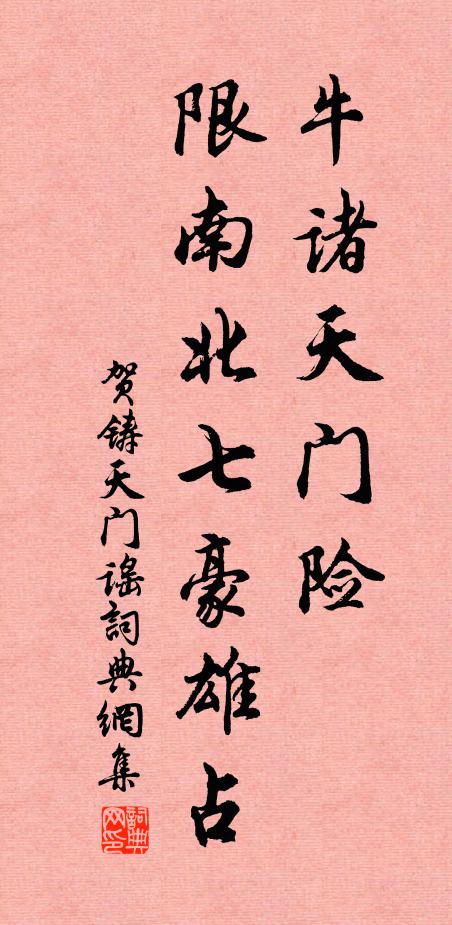 牛诸天门险
限南北七豪雄占
贺铸天门谣词典網集
词典网印